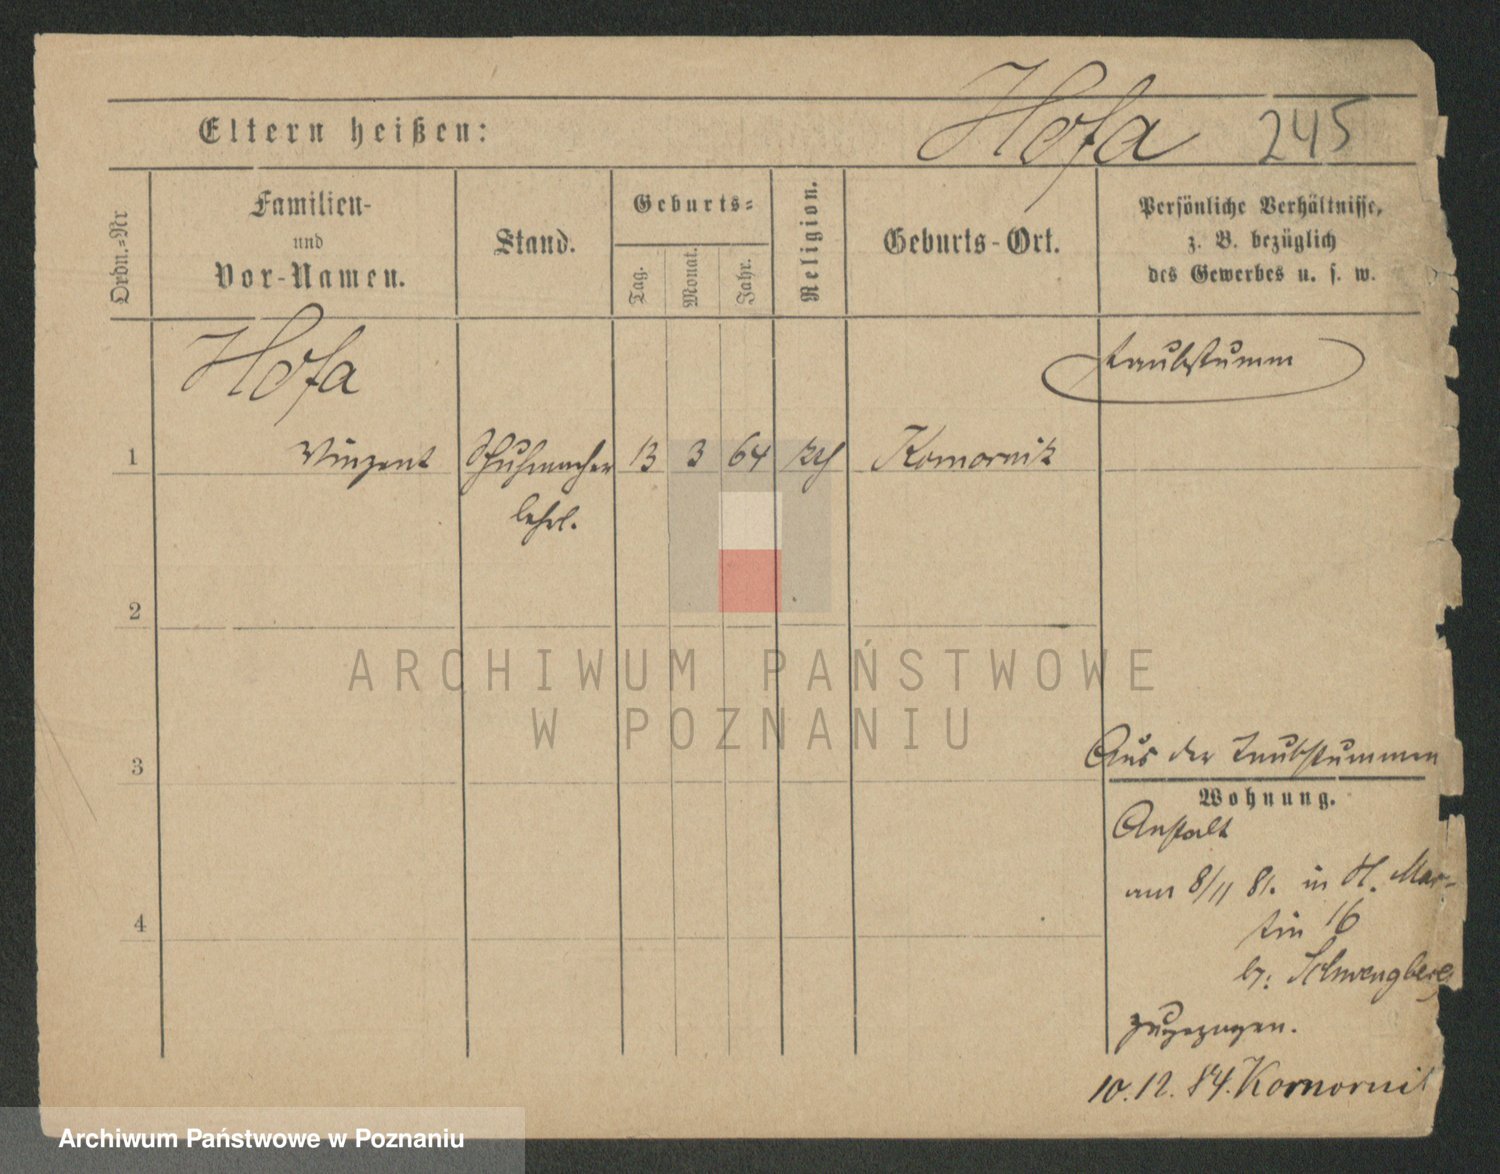 Hofa 245
Eltern heißen:
Ordn.=Nr
Familien-
und
Vor-Namen.
Stand.
Geburts=
Tag.
Monat.
Jahr.
Religion.
Geburts-Ort.
Persönliche Verhältnisse,
z. B. bezüglich
des Gewerbes u. s. w.
Hofa
taubstumm
1 Vinzent Schuhmacher 13 3 64 Komornik
lehrl.
2
3
4
Aus der Taubstummen
Wohnung.
Anstalt
am 8/11 81. in St. Mar-
tin 16
b: Schwengber
zugezogen.
10.12.84. Komornik
ARCHIWUM PAŃSTWOWE
W POZNANIU
Archiwum Państwowe w Poznaniu